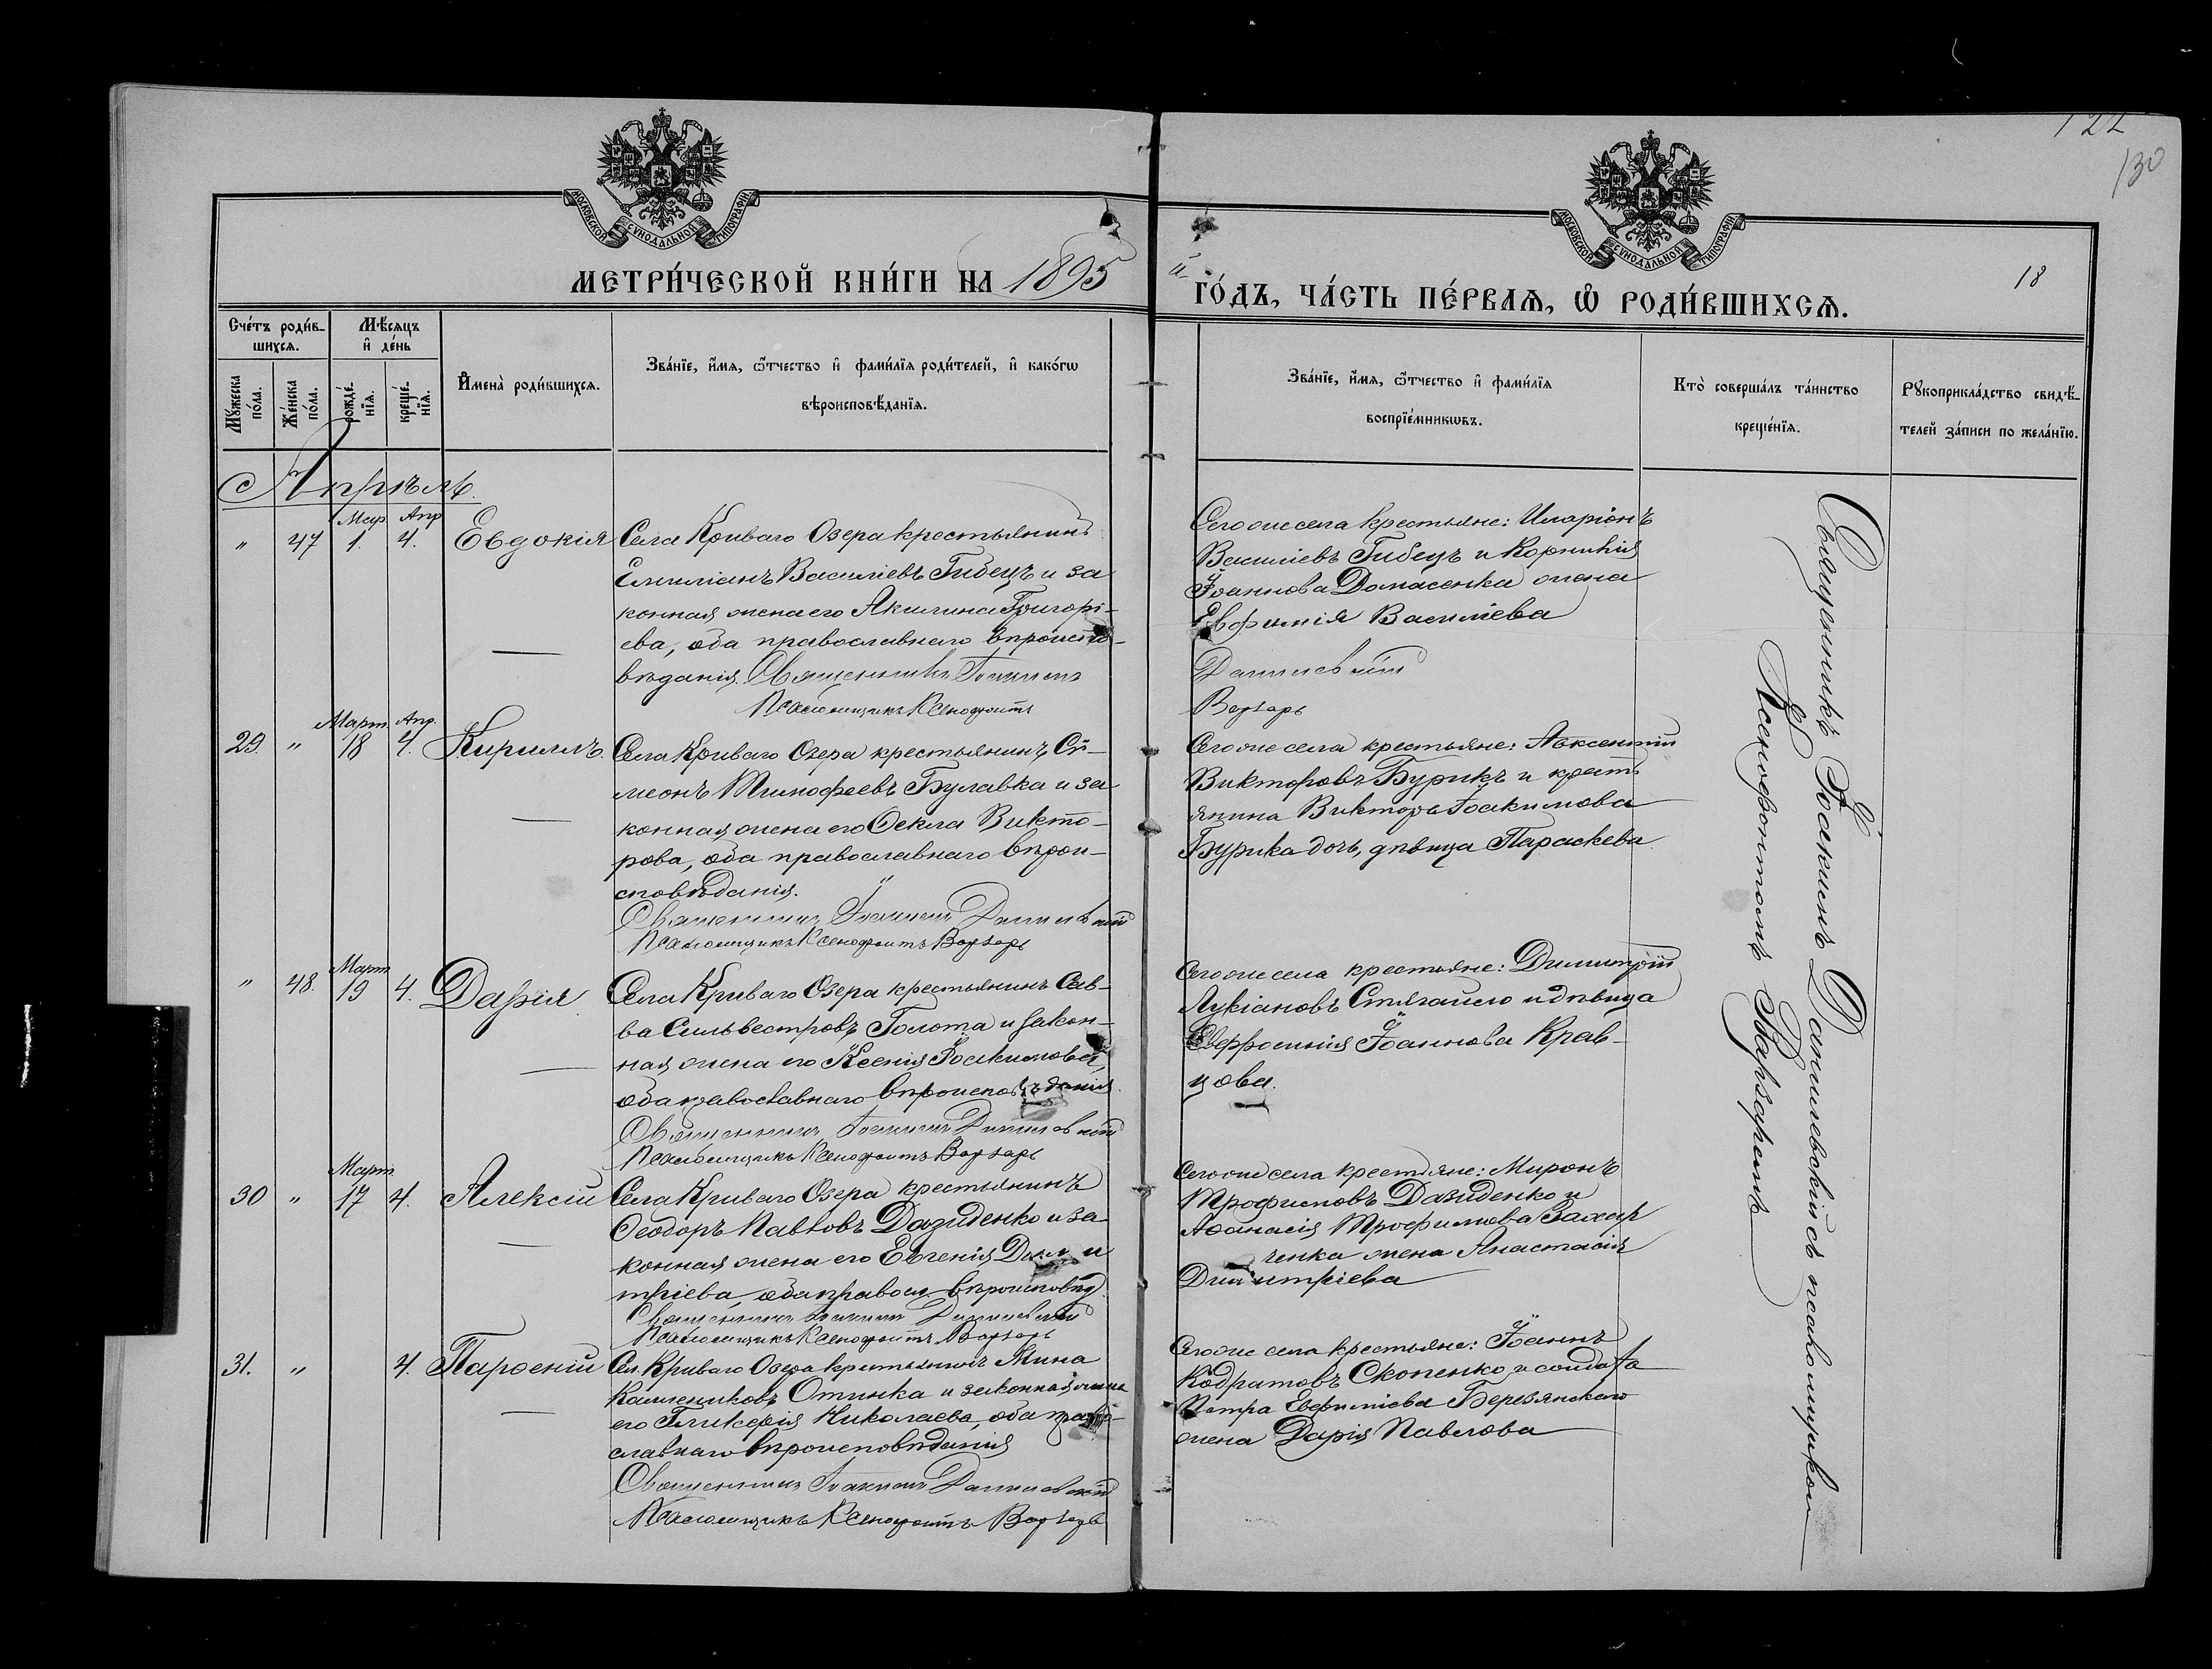 122
130
МОСКОВСКОЙ СѴНОДАЛЬНОЙ ТИПОГРАФІИ
МОСКОВСКОЙ СѴНОДАЛЬНОЙ ТИПОГРАФІИ
МЕТРИ́ЧЕСКОЙ КНИ́ГИ НА 1895
й ГО́ДЪ, ЧА́СТЬ ПЕ́РВАЯ, Ѡ РОДИ́ВШИХСЯ.
18
Сче́тъ роди́в-
шихся.
Му́жеска по́ла.
Же́нска по́ла.
Мѣ́сяцъ и де́нь
рожде́нїя.
креще́нїя.
И҆мена̀ роди́вшихся.
Зва́нїе, и҆́мя, ѻ҆́тчество и҆ фами́лїя роди́телей, и҆ како́гѡ
вѣроисповѣ́данїя.
Зва́нїе, и҆́мя, ѻ҆́тчество и҆ фами́лїя
воспрїе́мникѡвъ.
Кто̀ соверша́лъ та́инство
креще́нїя.
Рꙋкоприкла́дство свидѣ́-
телей за́писи по жела́нїю.
Апрѣль.
Мар. Апр
" 47 1. 4. Евдокія
Села Криваго Озера крестьянинъ
Емиліанъ Василіевъ Гибецъ и за
конная жена его Акилина Григорі-
ева, оба православнаго вѣроиспо-
вѣданія. Священникъ Іоакимъ
Псаломщикъ Ксенофонтъ
Сегоже села крестьяне: Иларіонъ
Василіевъ Гибецъ и Корнилія
Іоаннова Домасенка жена
Евфимія Василіева
Данилевскій
Варзарь
Март. Апр.
29. " 18 4. Кириллъ.
Села Криваго Озера крестьянинъ Си-
меонъ Тимофеевъ Булавка и за
конная жена его Ѳекла Викто-
рова, оба православнаго вѣрои-
сповѣданія.
Священникъ Іоакимъ Данилевскій
Псаломщикъ Ксенофонтъ Варзарь
Сегоже села крестьяне: Авксентій
Викторовъ Бурикъ и крест
янина Виктора Іоакимова
Бурика дочь, дѣвица Параскева
Март
" 48. 19 4. Дарія
Села Криваго Озера крестьянинъ Сав-
ва Сильвестровъ Голота и закон-
ная жена его Ксенія Іоакимова,
оба православнаго вѣроисповѣданія.
Священникъ Іоакимъ Данилевскій
Псаломщикъ Ксенофонтъ Варзарь
Сегоже села крестьяне: Димитрій
Лукіановъ и дѣвица
Евфросинія Іоаннова Крав-
цова.
Март
30 " 17 4. Алексій
Села Криваго Озера крестьянинъ
Ѳеодоръ Павловъ Давиденко и за
конная жена его Евгенія Дими
тріева, оба правосл. вѣроисповѣд.
Священникъ Іоакимъ Данилевскій
Псаломщикъ Ксенофонтъ Варзарь
Сегоже села крестьяне: Миронъ
Трофимовъ Давиденко и
Аѳанасія Трофимова Захар
ченка жена Анастасія
Димитріева
31. " 4. Парѳеній
Сел. Криваго Озера крестьянинъ Мина
Отинка и законная жена
его Гликерія Николаева, оба право-
славнаго вѣроисповѣданія
Священникъ Іоакимъ Данилевскій
Псаломщикъ Ксенофонтъ Варзарь
Сегоже села крестьяне: Іоаннъ
Кодратовъ Скопенко и солдата
Петра Евфиміева Березянскаго
жена Дарія Павлова
Священникъ Іоакимъ Данилевскій съ псаломщикомъ
Ксенофонтомъ Варзаремъ